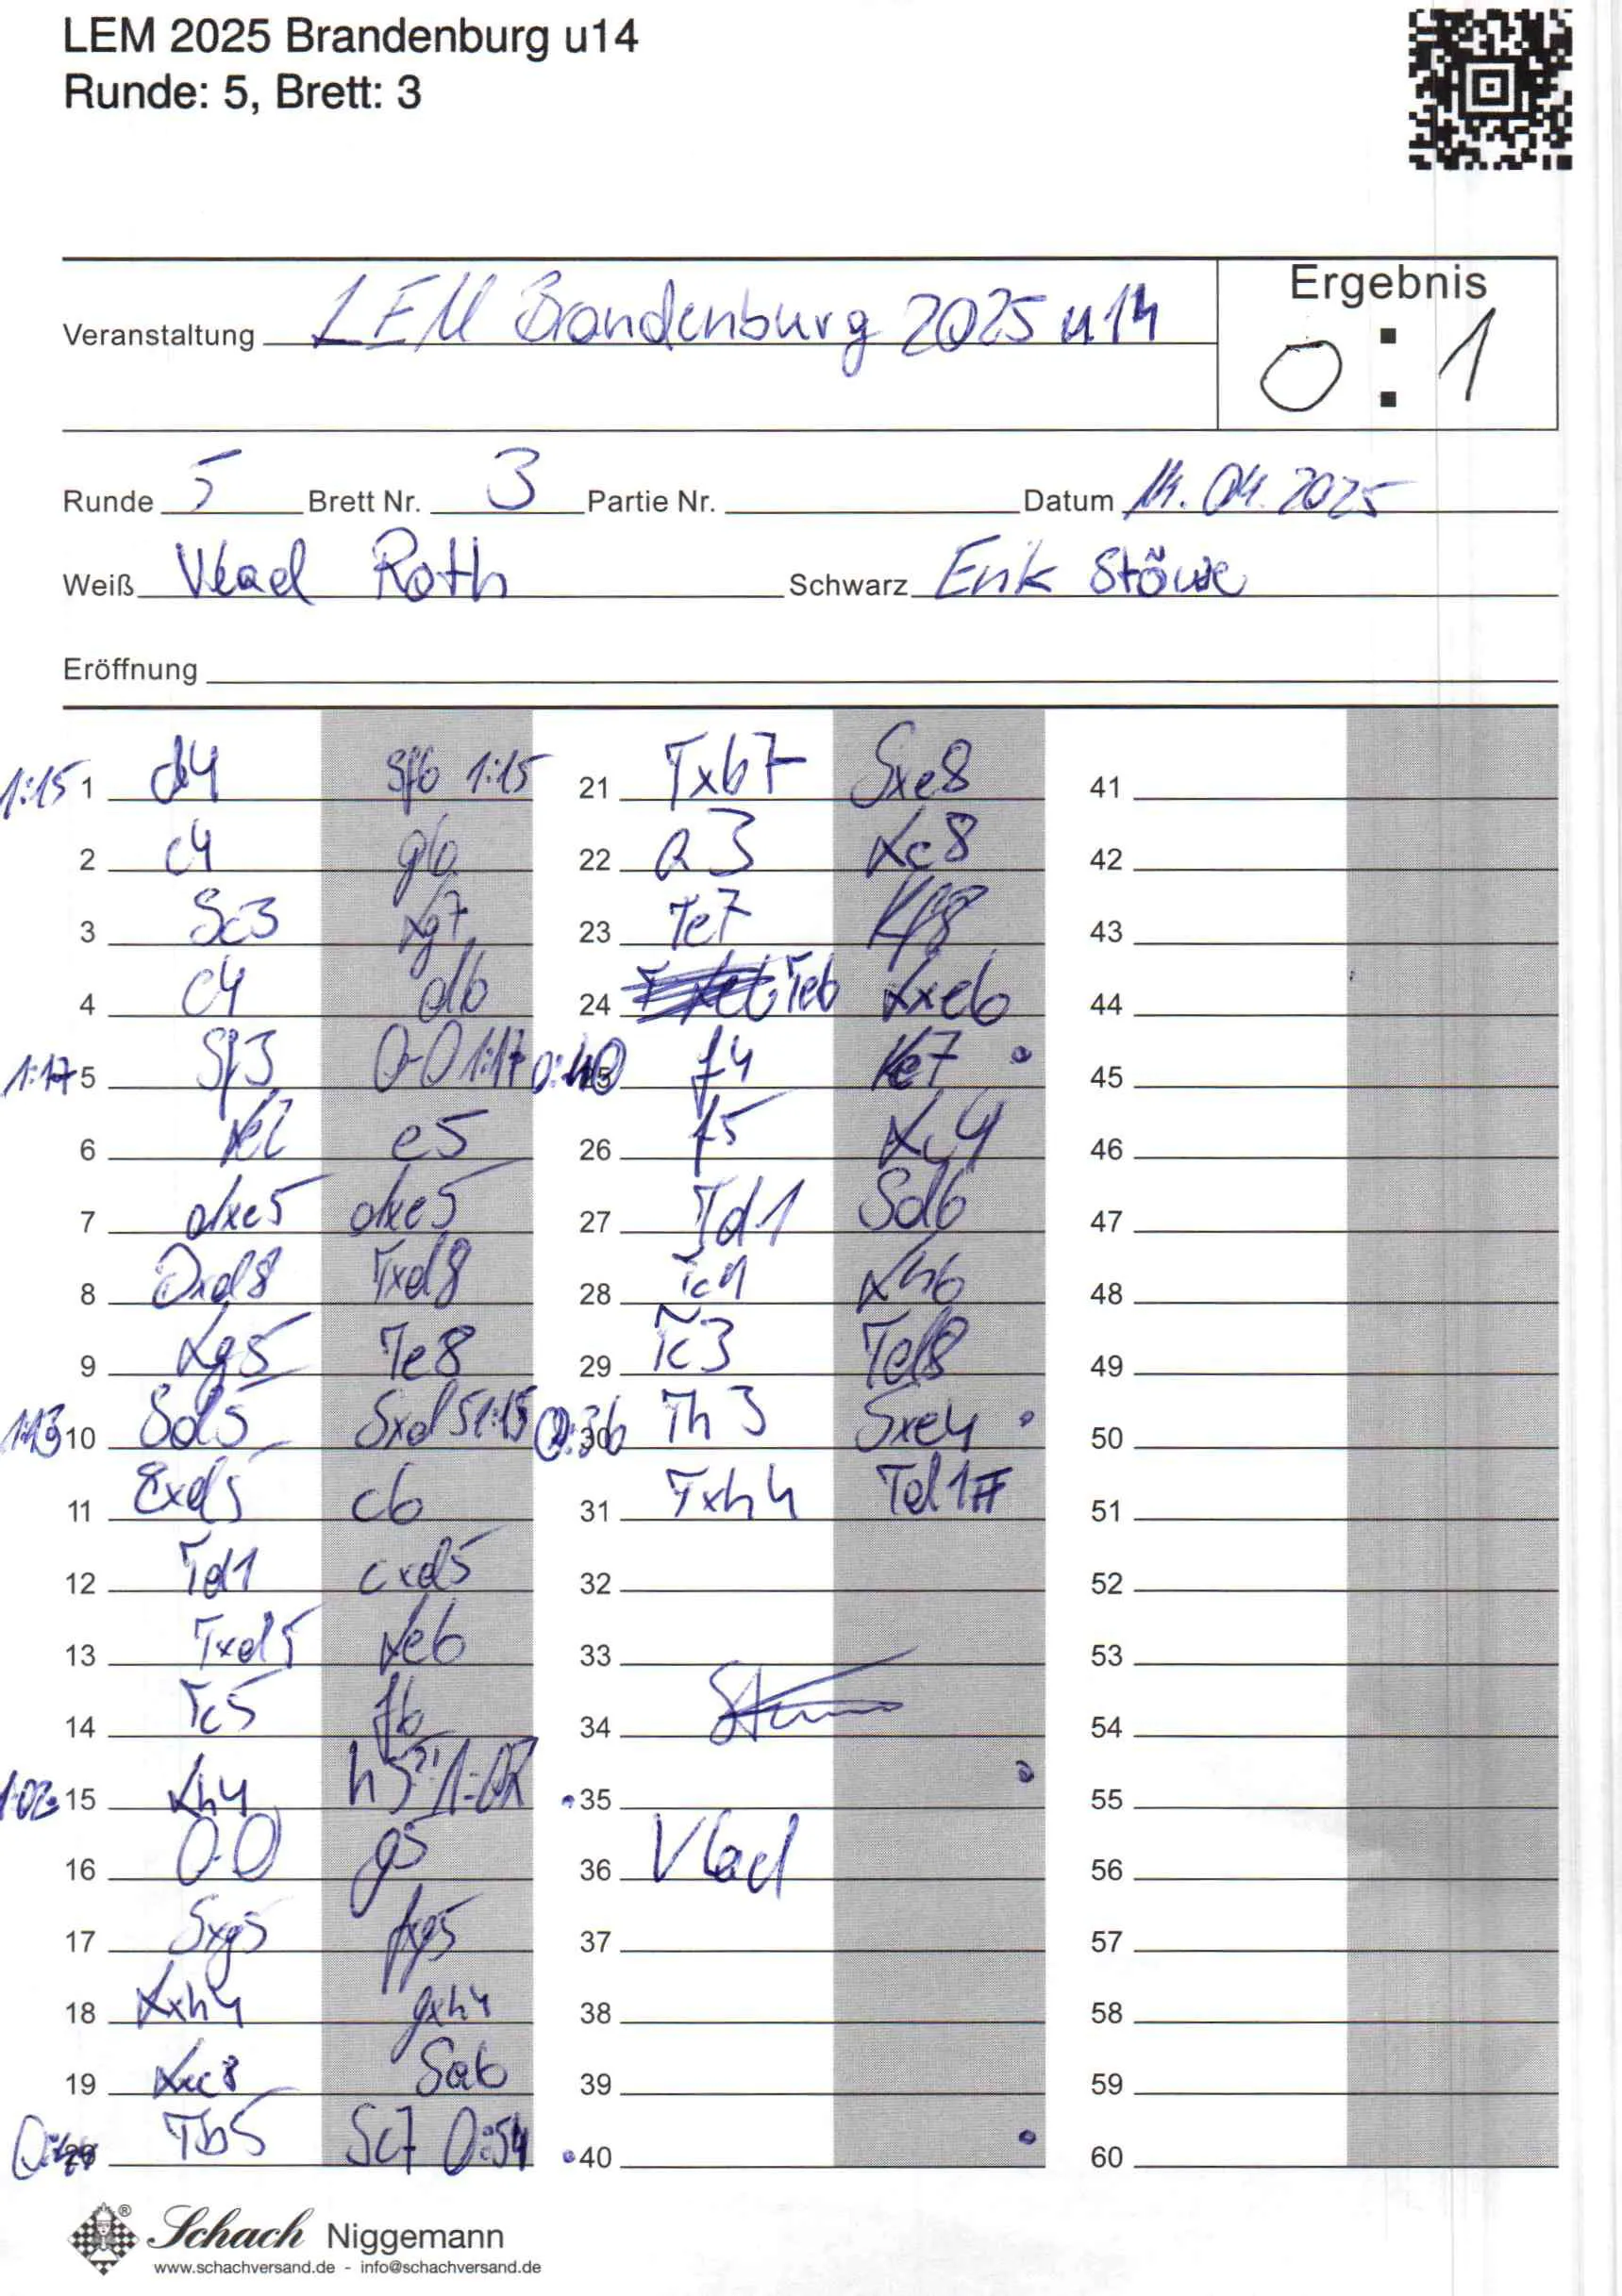 LEM 2025 Brandenburg u14
Runde: 5, Brett: 3
Ergebnis
Veranstaltung LEM Brandenburg 2025 u14
0 : 1
Runde 5 Brett Nr. 3 Partie Nr. Datum 14.04.2025
Weiß Vlad Roth Schwarz Erik Stöwe
Eröffnung
1:15 1 d4 Sf6 1:15
2 c4 g6
3 Sc3 Lg7
4 e4 d6
1:17 5 Sf3 0-0 1:17
6 Le2 e5
7 dxe5 dxe5
8 Dxd8 Txd8
9 Lg5 Te8
1:13 10 Sd5 Sxd5 1:15
11 exd5 c6
12 Td1 cxd5
13 Txd5 Le6
14 Tc5 f6
1:02 15 Lh4 h5
16 0-0 g5
17 Sxg5 fxg5
18 Lxh4 gxh4
19 Sa6
20 Tb5 Sc7 0:54
21 Txb7 Sxe8
22 a3 Lc8
23 Te7 Kf8
24 Te6 Lxe6
0:40 25 f4 Ke7
26 f5 Lc4
27 Td1 Sd6
28 Tc1 Lh6
29 Tc3 Td8
0:36 30 Th3 Sxe4
31 Txh4 Td1#
32
33
34
35
36 Vlad
37
38
39
40
41
42
43
44
45
46
47
48
49
50
51
52
53
54
55
56
57
58
59
60
Schach Niggemann ®
www.schachversand.de - info@schachversand.de